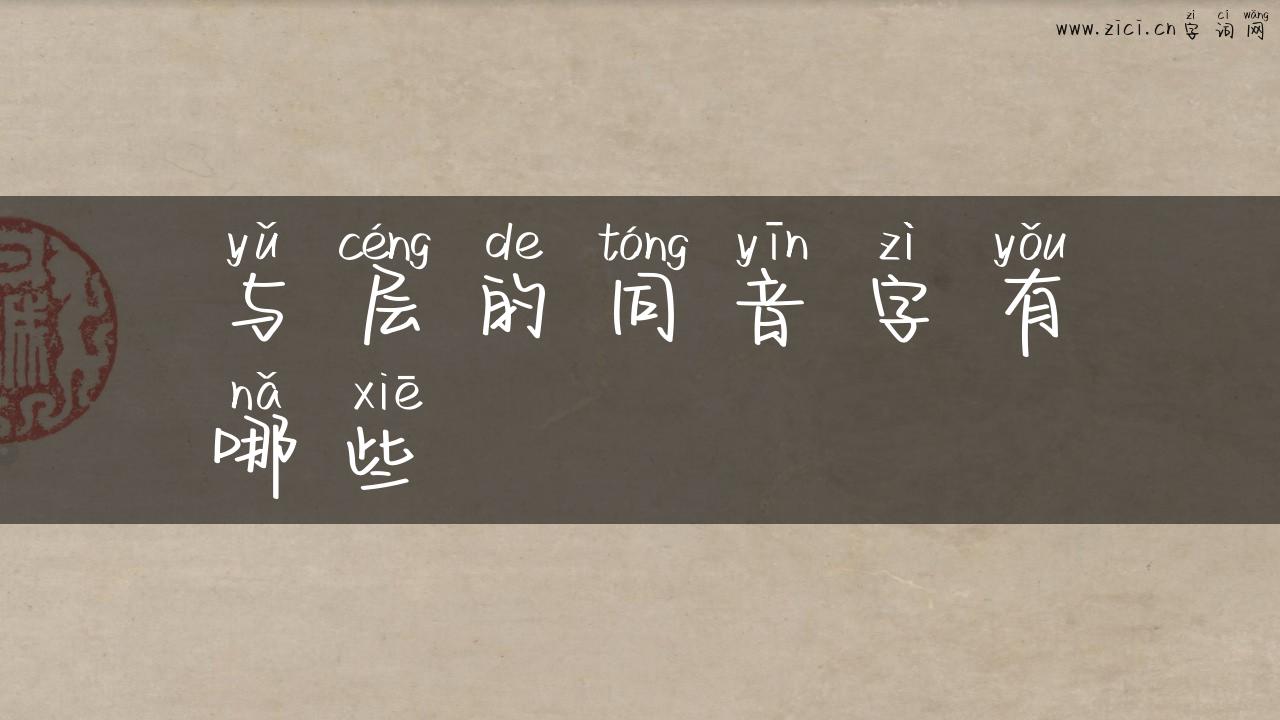 zì cí wǎng
www.zici.cn 字词网
yǔ céng de tóng yīn zì yǒu
与层的同音字有
nǎ xiē
哪些